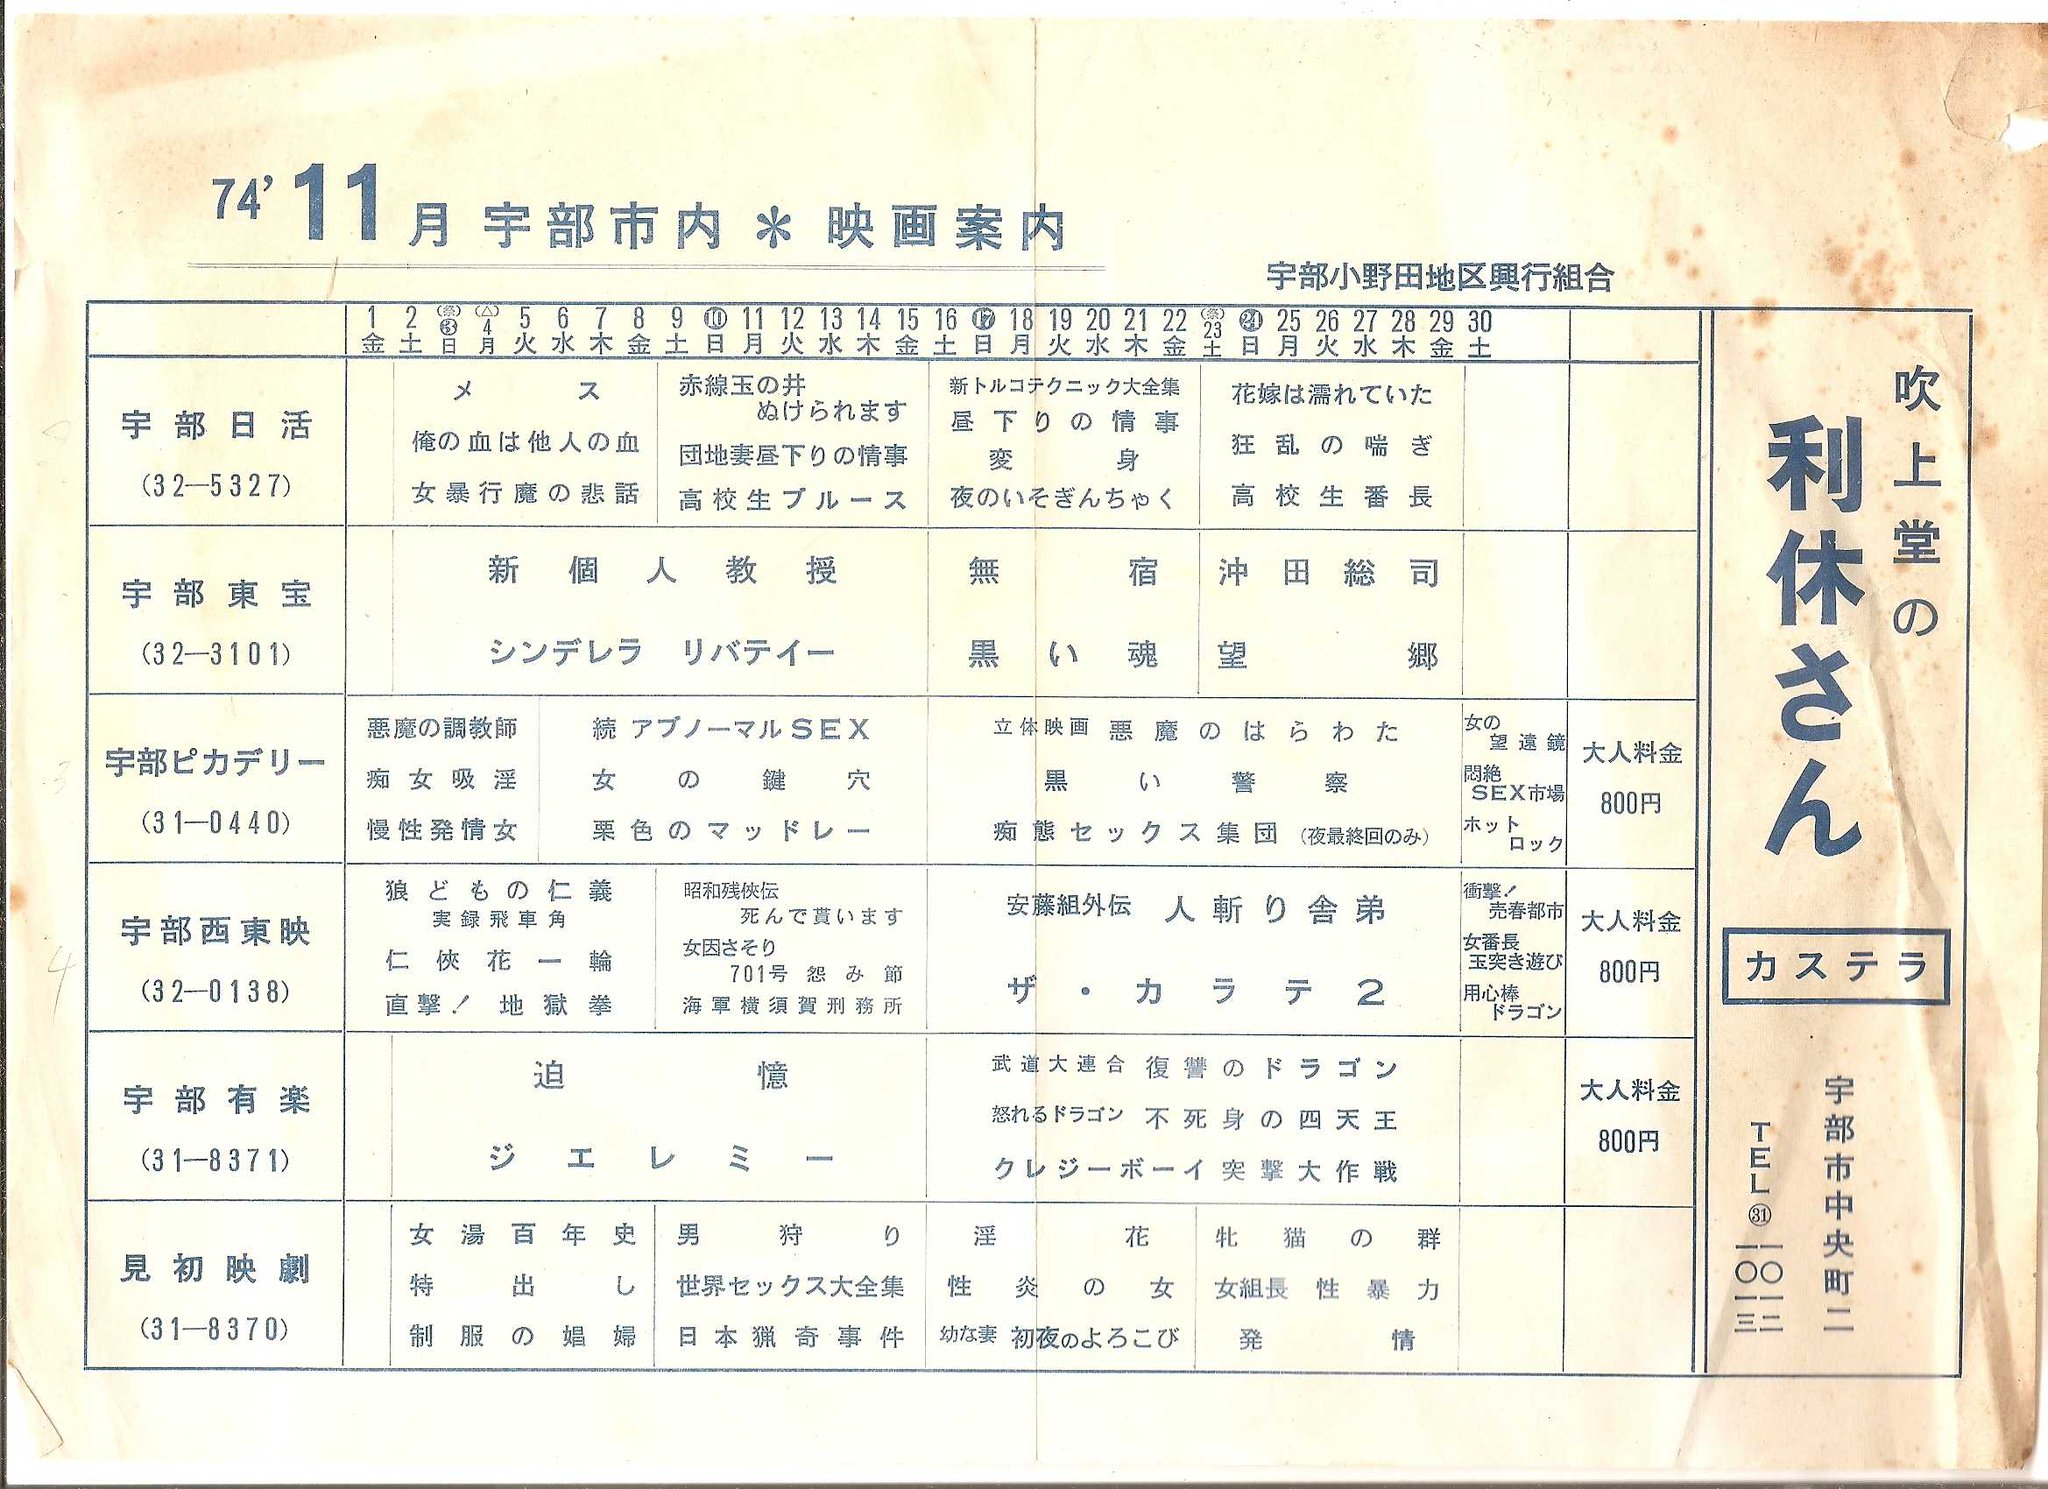 74' 11月 宇部市内 * 映画案内
宇部小野田地区興行組合
1 2 (祭)3 (△)4 5 6 7 8 9 10 11 12 13 14 15 16 17 18 19 20 21 22 (祭)23 24 25 26 27 28 29 30
金 土 日 月 火 水 木 金 土 日 月 火 水 木 金 土 日 月 火 水 木 金 土 日 月 火 水 木 金 土
宇部日活
(32—5327)
メス
俺の血は他人の血
女暴行魔の悲話
赤線玉の井
ぬけられます
団地妻昼下りの情事
高校生ブルース
新トルコテクニック大全集
昼下りの情事
変身
夜のいそぎんちゃく
花嫁は濡れていた
狂乱の喘ぎ
高校生番長
宇部東宝
(32—3101)
新個人教授
シンデレラ リバテイー
無宿
黒い魂
沖田総司
望郷
宇部ピカデリー
(31—0440)
悪魔の調教師
痴女吸淫
慢性発情女
続 アブノーマルSEX
女の鍵穴
栗色のマッドレー
立体映画 悪魔のはらわた
黒い警察
痴態セックス集団 (夜最終回のみ)
女の
望遠鏡
悶絶
SEX市場
ホット
ロック
大人料金
800円
宇部西東映
(32—0138)
狼どもの仁義
実録飛車角
仁侠花一輪
直撃! 地獄拳
昭和残侠伝
死んで貰います
女囚さそり
701号 怨み節
海軍横須賀刑務所
安藤組外伝 人斬り舎弟
ザ・カラテ2
衝撃!
売春都市
女番長
玉突き遊び
用心棒
ドラゴン
大人料金
800円
宇部有楽
(31—8371)
追憶
ジエレミー
武道大連合 復讐のドラゴン
怒れるドラゴン 不死身の四天王
クレジーボーイ 突撃大作戦
大人料金
800円
見初映劇
(31—8370)
女湯百年史
特出し
制服の娼婦
男狩り
世界セックス大全集
日本猟奇事件
淫花
性炎の女
幼な妻 初夜のよろこび
牝猫の群
女組長 性暴力
発情
吹上堂の
利休さん
カステラ
宇部市中央町二
TEL㉛一〇一二
一〇一三